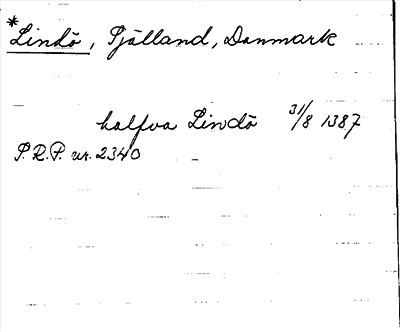 *Lindö, Själland, Danmark
halfva Lindö 31/8 1387
S.R.P. nr. 2340